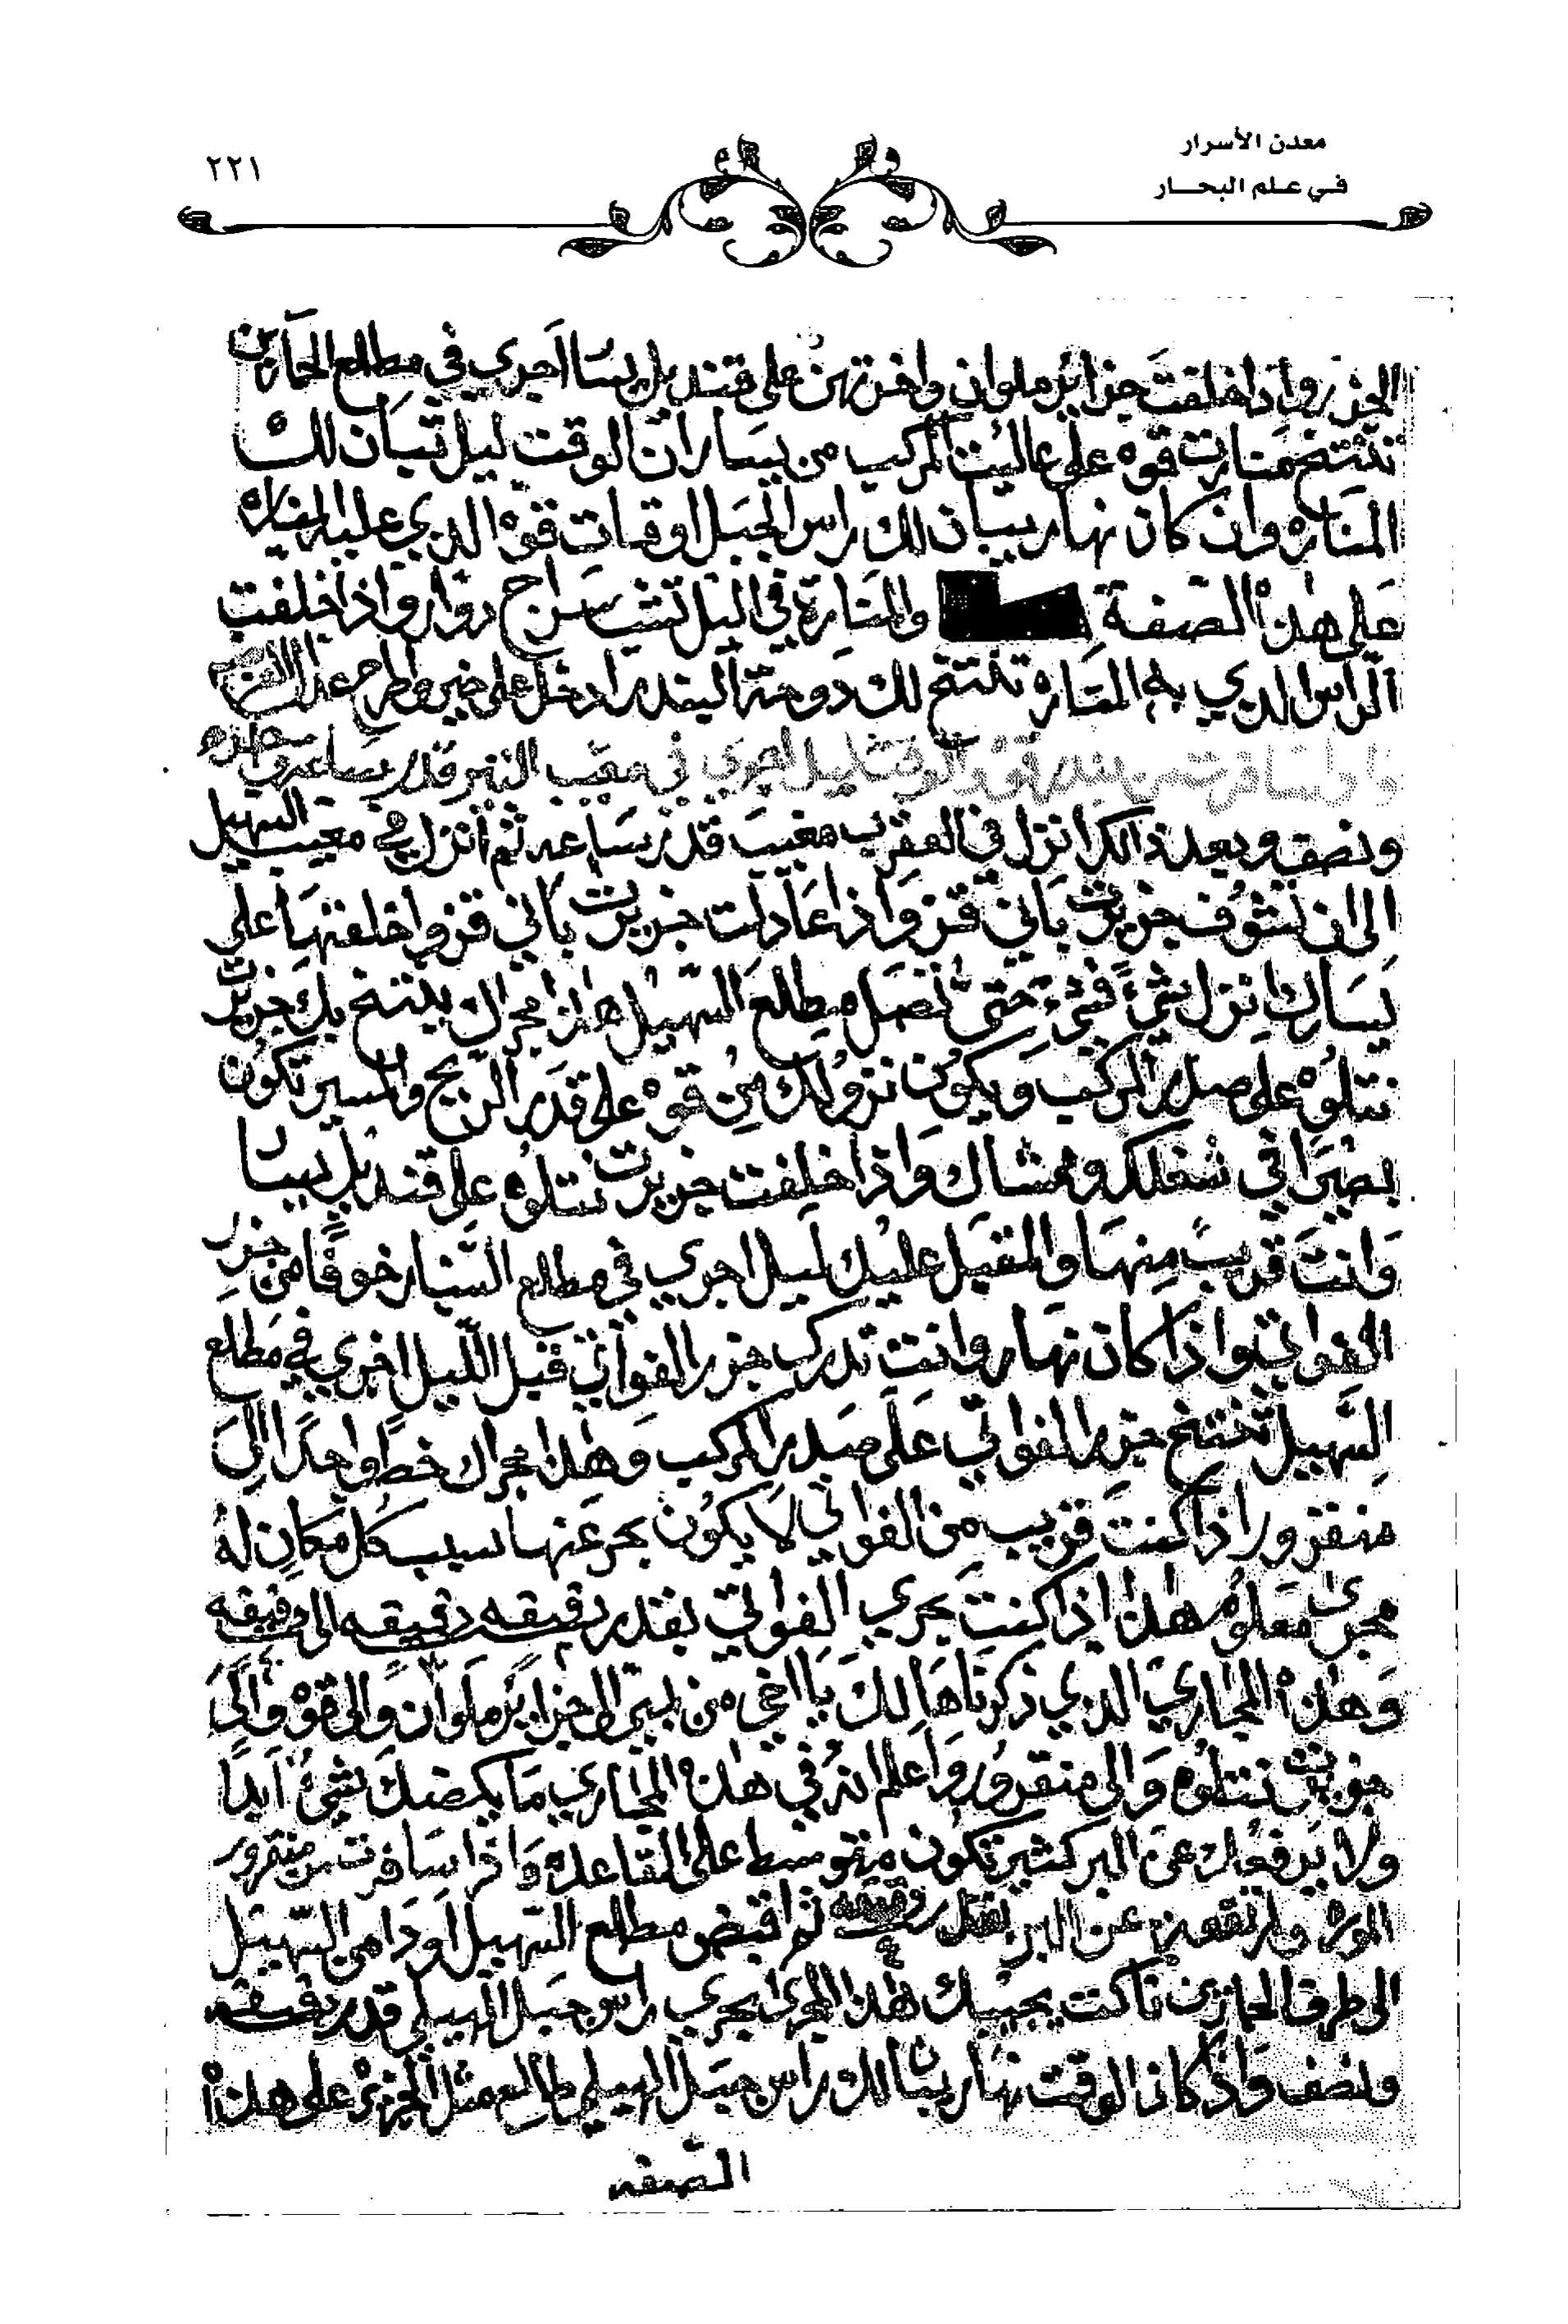 معدن الأسرار
في علم البحار
٢٢١
الجزر واذا خلفت جزاير ملوان واخرتهن على قنديل يسار اجري في مطلع الحمارين
تنتخ منارت قوه على عاليت المركب من يسار ان الوقت ليل تبان لك
المناره وان كان نهار يبان لك راس الجبل اوقات قوه الدي عليه المناره
على هذه الصفة والمنارة في اليل تشب سراج دوار واذا خلفت
الراس الدي به المناره تنتخ لك دوحة البندر ادخل على خير واطرح عند الفرضه
واذا سافرت من بندر قوه الوقت ليل اجري في مغيب التير قدر ساعه
ونصف وبعد ذالك انزل في العقرب مغيب قدر ساعه ثم انزل في مغيب السهيل
الى ان تشوف جزيرت باني قز واذا عادلت جزيرت باني قز واخلفتها على
يسارك انزل شيء فشيء حتى تصل مطلع السهيل هذا مجراك ينتخ بك جزيرت
نتلوه على صدر المركب ويكون نزولك من قوه على قدر الريح والمسير تكون
بصيرا في شغلك وممشاك واذا خلفت جزيرت نتلوه على قنديل يسار
وانت قريب منها والمقبل عليك ليل اجري في مطلع السنبار خوفا من جزر
الفوالي واذا كان نهار وانت تدرك جزر الفوالي قبل الليل اجري في مطلع
السهيل تنتخ جزر الفوالي على صدر المركب وهذا مجراك خط واحد الى
منقرور اذا كنت قريب من الفوالي لا يكون بحر عنها سبب كل مكان له
مجرى معلوم هذا اذا كنت بحري الفوالي بقدر دقيقه دقيقه الى دقيقه
وهذه المجاري الدي ذكرناها لك يا اخي من بمبي الى جزاير ملوان والى قوه والى
جزيرت نتلوه والى منقرور واعلم انه في هذه المجاري ما يكضك شيء ابدا
ولا يرفعك عن البر كثير تكون متوسط على القاعده واذا سافرت من منقرور
الموره وارتفعت عن البر بقدر دقيقه ٤ ثم اقبض مطلع السهيل اودامن السهيل
الى طرف الحمارين تاكت يجيبك هذا المجرى بحري راس جبل الهيلي قدر دقيقه
ونصف واذا كان الوقت نهار يبان لك راس جبل الهيلي طالع مثل الجزيره على هذه
الصفه